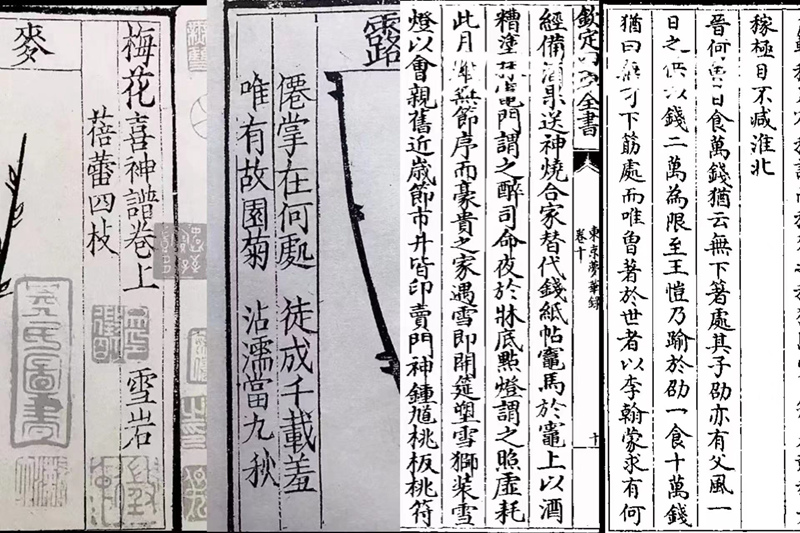 梅花喜神譜卷上 雪岩
蓓蕾四枝
麥
露
僊掌在何處 徒成千載羞
唯有故園菊 沾濡當九秋
欽定四庫全書
東京夢華錄
卷十
十
經備酒果送神燒合家替代錢紙帖竈馬於竈上以酒
糟塗抹竈門謂之醉司命夜於牀底點燈謂之照虛耗
此月雖無節序而豪貴之家遇雪即開筵塑雪獅裝雪
燈以會親舊近歲節市井皆印賣門神鍾馗桃板桃符
稼極目不減淮北
晉何曾日食萬錢猶云無下箸處其子劭亦有父風一
日之供以錢二萬為限至王愷乃踰於劭一食十萬錢
猶曰無可下筯處而唯曾著於世者以李翰蒙求有何